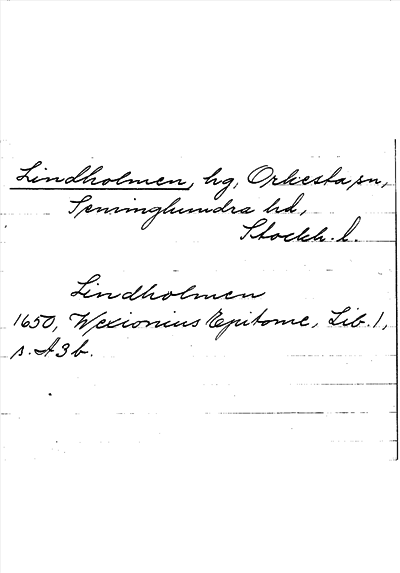 Lindholmen, hg, Orkesta sn,
Seminghundra hd,
Stockh. l.
Lindholmen
1650, Wexionius Epitome, Lib. 1,
s. A3b.